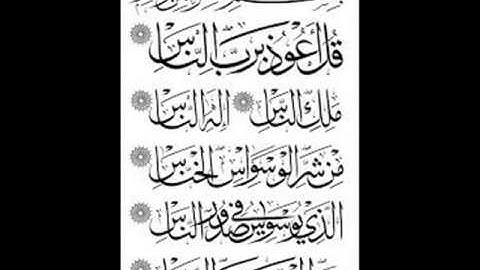 قُلْ أَعُوذُ بِرَبِّ النَّاسِ
مَلِكِ النَّاسِ إِلَهِ النَّاسِ
مِنْ شَرِّ الْوَسْوَاسِ الْخَنَّاسِ
الَّذِي يُوَسْوِسُ فِي صُدُورِ النَّاسِ